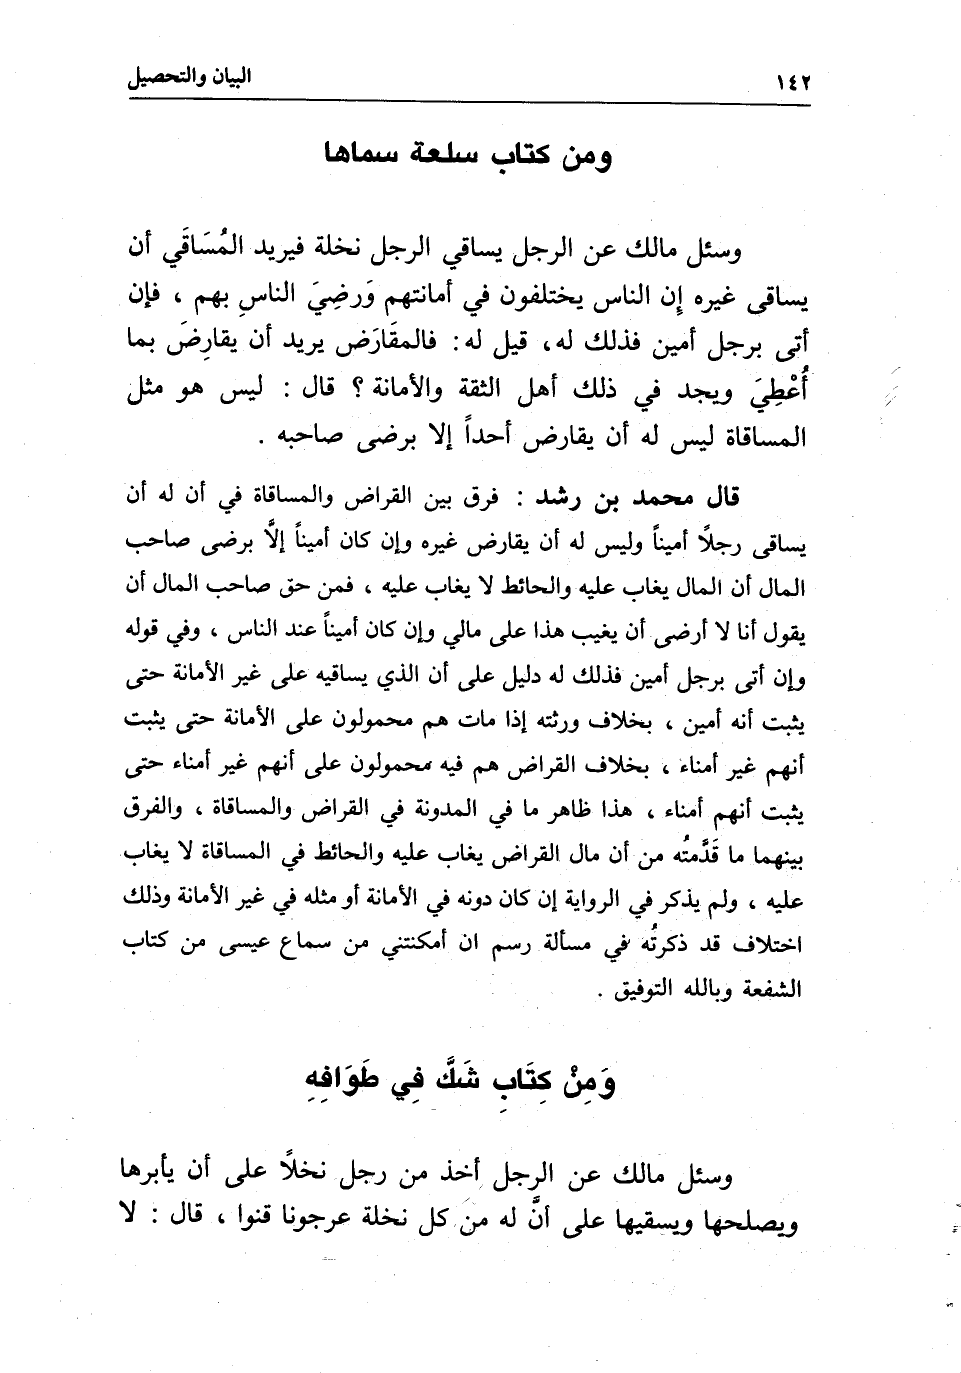 ١٤٢ البيان والتحصيل
ومن كتاب سلعة سماها
وسئل مالك عن الرجل يساقي الرجل نخلة فيريد المُسَاقَي أن
يساقى غيره إِن الناس يختلفون في أمانتهم وَرضِيَ الناسِ بهم ، فإن
أتى برجل أمين فذلك له، قيل له: فالمقَارَض يريد أن يقارِضَ بما
أُعْطِيَ ويجد في ذلك أهل الثقة والأمانة ؟ قال : ليس هو مثل
المساقاة ليس له أن يقارض أحداً إلا برضى صاحبه .
قال محمد بن رشد : فرق بين القراض والمساقاة في أن له أن
يساقى رجلًا أميناً وليس له أن يقارض غيره وإن كان أميناً إلاَّ برضى صاحب
المال أن المال يغاب عليه والحائط لا يغاب عليه ، فمن حق صاحب المال أن
يقول أنا لا أرضى أن يغيب هذا على مالي وإن كان أميناً عند الناس ، وفي قوله
وإن أتى برجل أمين فذلك له دليل على أن الذي يساقيه على غير الأمانة حتى
يثبت أنه أمين ، بخلاف ورثته إذا مات هم محمولون على الأمانة حتى يثبت
أنهم غير أمناء ، بخلاف القراض هم فيه محمولون على أنهم غير أمناء حتى
يثبت أنهم أمناء ، هذا ظاهر ما في المدونة في القراض والمساقاة ، والفرق
بينهما ما قَدَّمتُه من أن مال القراض يغاب عليه والحائط في المساقاة لا يغاب
عليه ، ولم يذكر في الرواية إن كان دونه في الأمانة أو مثله في غير الأمانة وذلك
اختلاف قد ذكرتُه في مسألة رسم ان أمكنتني من سماع عيسى من كتاب
الشفعة وبالله التوفيق .
وَمِنْ كِتَابِ شَكَّ فِي طَوَافِهِ
وسئل مالك عن الرجل أخذ من رجل نخلًا على أن يأبرها
ويصلحها ويسقيها على أنَّ له من كل نخلة عرجونا قنوا ، قال : لا